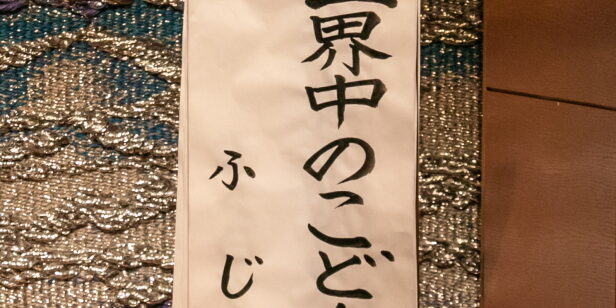 界中のこど
ふじ